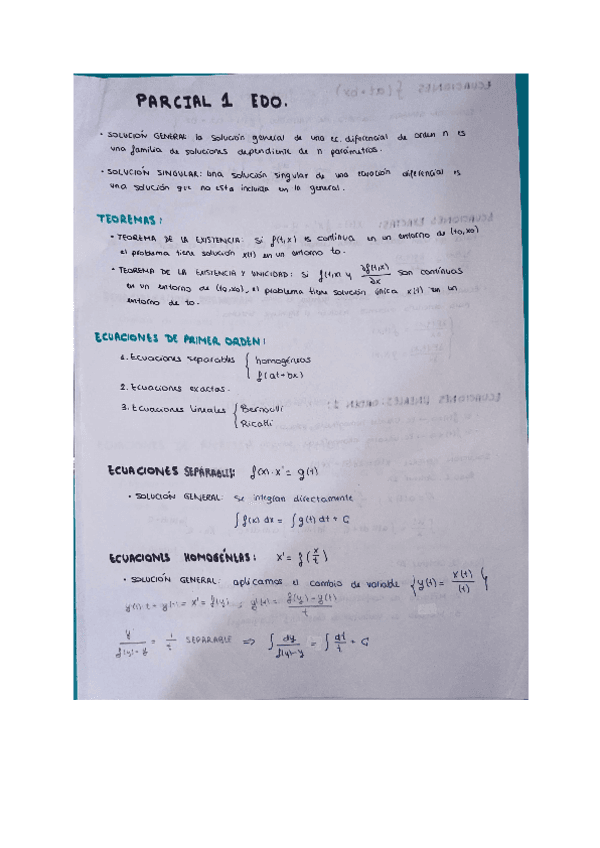 PARCIAL 1 EDO.
• SOLUCIÓN GENERAL: la solución general de una ec. diferencial de orden n es
una familia de soluciones dependiente de n parámetros.
• SOLUCIÓN SINGULAR: una solución singular de una ecuación diferencial es
una solución que no esta incluida en la general.
TEOREMAS:
• TEOREMA DE LA EXISTENCIA: Si f(t,x) es continua en un entorno de (to,xo)
el problema tiene solución x(t) en un entorno to.
• TEOREMA DE LA EXISTENCIA Y UNICIDAD: si f(t,x) y ∂f(t,x)/∂x son continuas
en un entorno de (to,xo), el problema tiene solución única x(t) en un
entorno de to.
ECUACIONES DE PRIMER ORDEN:
1. Ecuaciones separables { homogéneas
f(at+bx)
2. Ecuaciones exactas.
3. Ecuaciones lineales { Bernoulli
Ricatti
ECUACIONES SEPARABLES: f(x)·x' = g(t)
• SOLUCIÓN GENERAL: Se integran directamente
∫f(x) dx = ∫g(t) dt + C
ECUACIONES HOMOGÉNEAS: x' = f(x/t)
• SOLUCIÓN GENERAL: aplicamos el cambio de variable { y(t) = x(t)/(t) }
= x' = f(y) ; y'(t) = f(y) - y(t)/t
y'/f(y)-y = 1/t SEPARABLE ⇒ ∫dy/f(y)-y = ∫dt/t + C